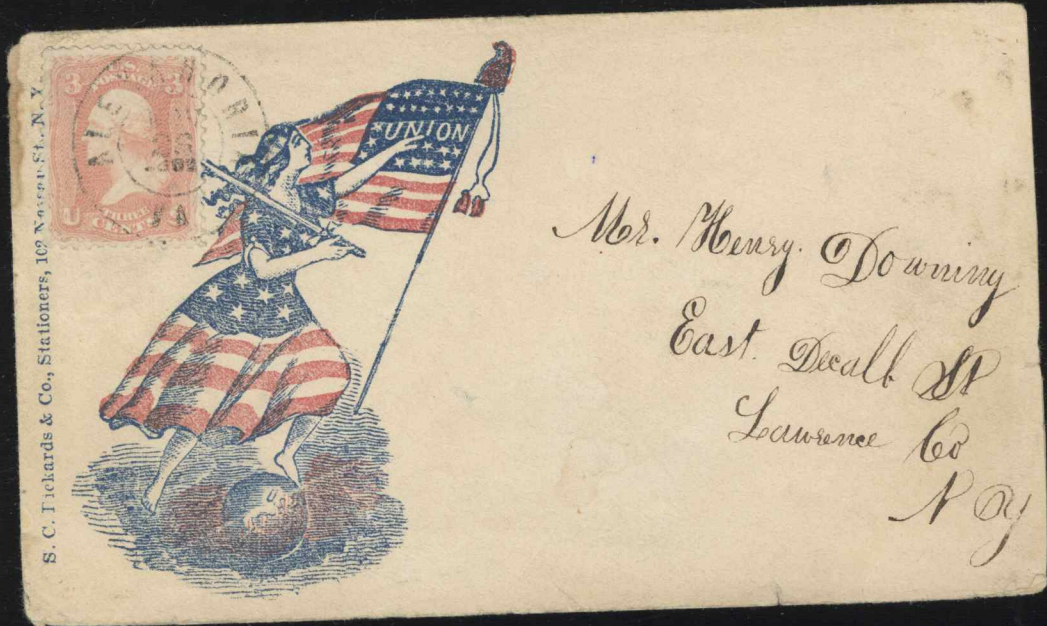 S. C. Rickards & Co., Stationers, 102 Nassau St., N. Y.
3 3
U.S. POSTAGE
U
THREE CENTS
VA
UNION
Mr. Henry. Downing
East. Decalb St
Lawrence Co
N Y